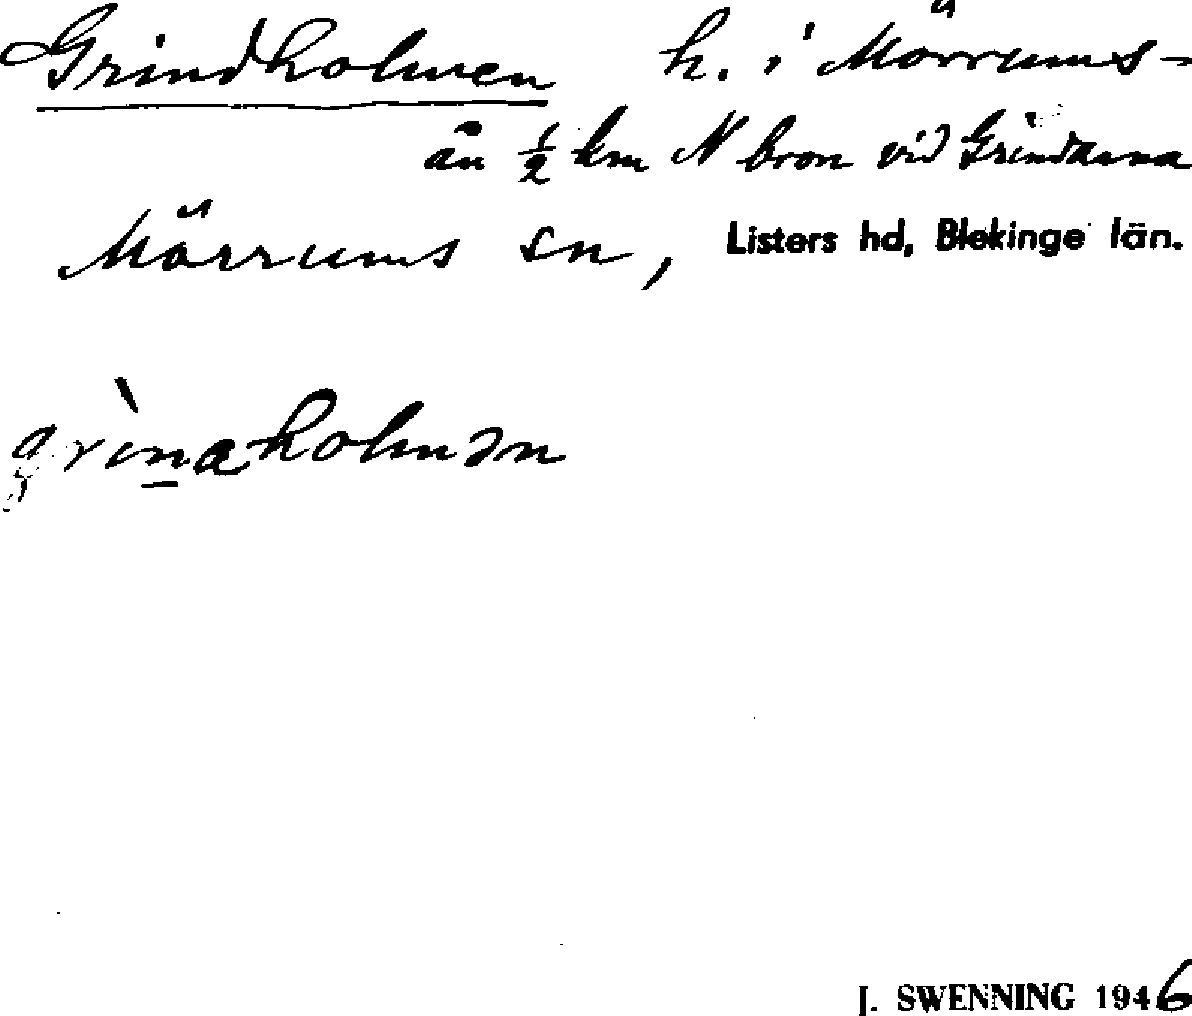 Grindholmen h. i Mörrums-
ån ½ km N bron vid Grindarna
Mörrums sn, Listers hd, Blekinge län.
grìn̲aholmən
J. SWENNING 1946